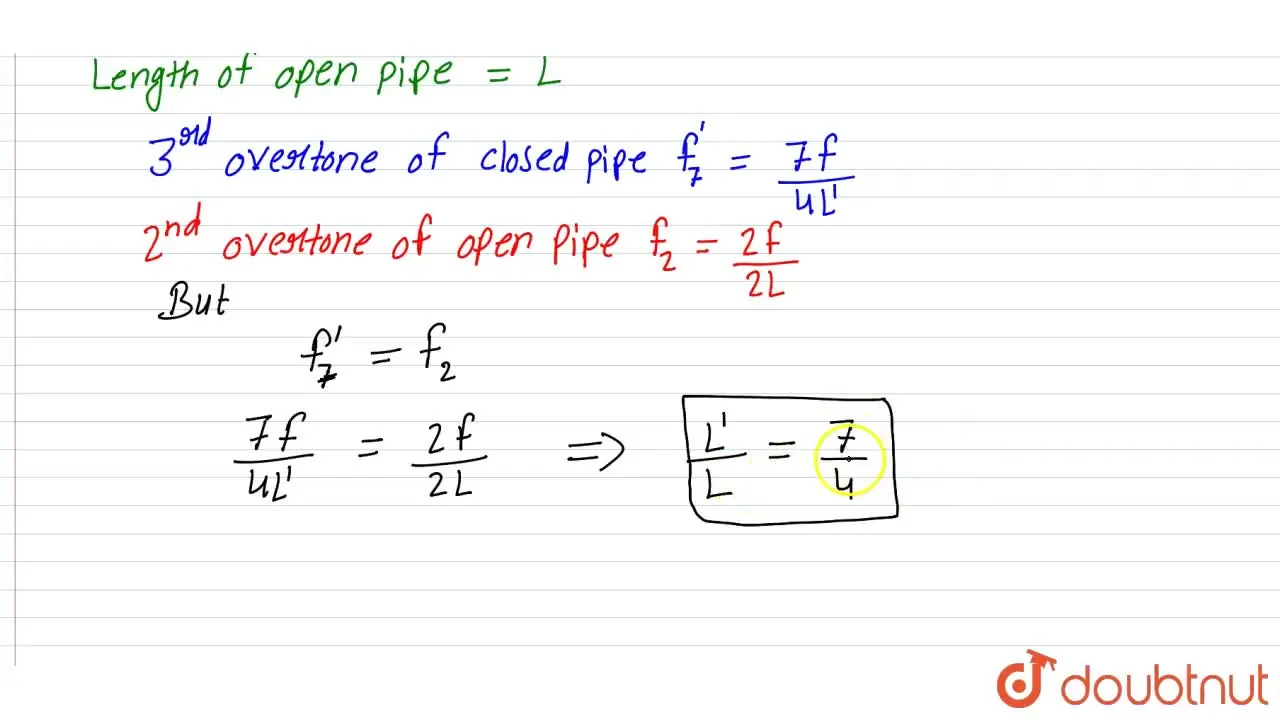 Length of open pipe = L
3rd overtone of closed pipe f'7 = 7f/4L'
2nd overtone of open pipe f2 = 2f/2L
But
f'7 = f2
7f/4L' = 2f/2L ⇒ L'/L = 7/4
doubtnut